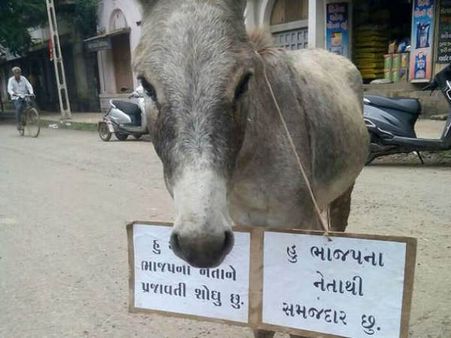 હુ
ભાજપના નેતાને
પ્રજાવતી શોધુ છુ.
હુ ભાજપના
નેતાથી
સમજદાર છુ.